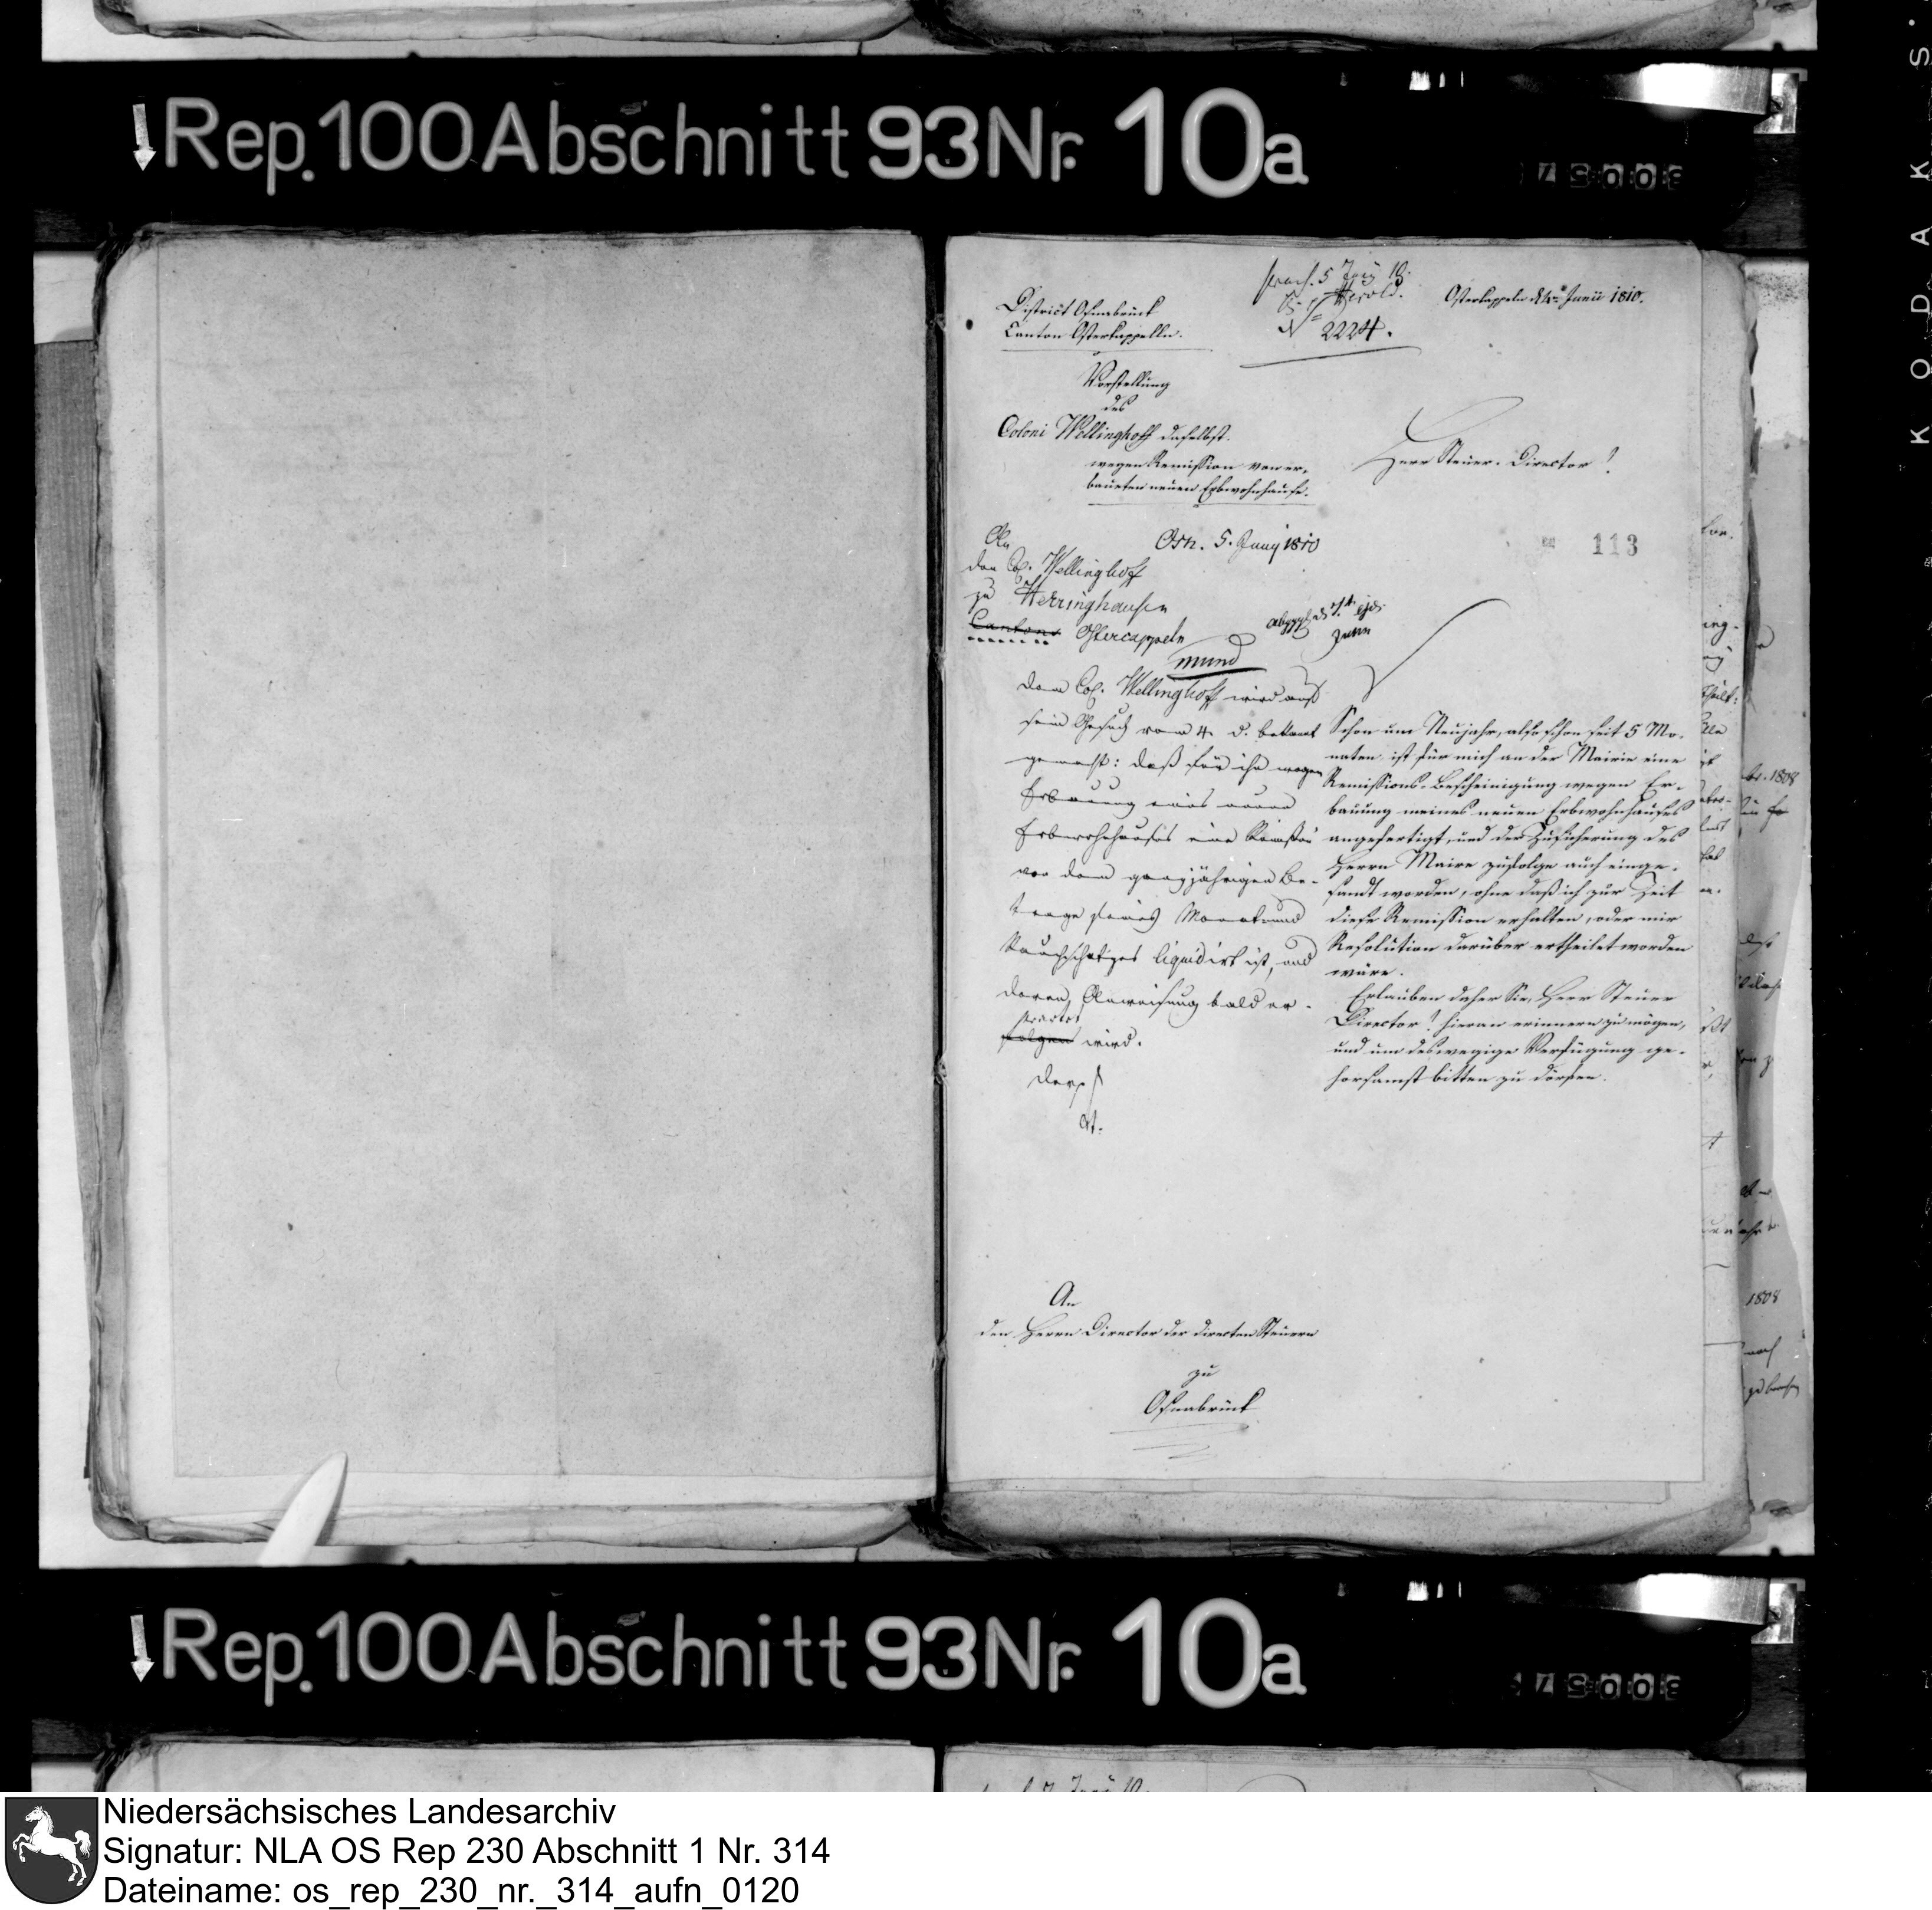 Rep. 100 Abschnitt 93 Nr. 10a
praes. 5 Juny 10.
Herold.
N 2224.
Ostercappeln d 4ten Junii 1810.
District Osnabrück
Canton Ostercappelln.
Vorstellung
des
Coloni Wellinghoff daselbst.
wegen Remission von er-
baueten neuen Erbwohnhause.
Herr Steuer-Director!
113
An
den Col. Wellinghoff
zu Herringhausen
Cantons Ostercappeln
Osn. 5. Juny 1810
mund
Dem Col. Wellinghoff wird auf
sein Gesuch vom 4. d. bekant
gemacht: daß für ihn wegen
Erbauung eines neuen
Erbwohnhauses eine Remission
von dem ganzjährigen Be-
trage seines Monat und
Rauchschatzes liquidirt ist, und
deren Anweisung bald er-
folgen wird.
Schon um Neujahr, also schon seit 5 Mo-
naten ist für mich an der Mairie eine
Remissions-Bescheinigung wegen Er-
bauung meines neuen Erbwohnhauses
angefertigt, und der Zusicherung des
Herrn Maire zufolge auch einge-
sandt worden, ohne daß ich zur Zeit
diese Remission erhalten, oder mir
Resolution darüber ertheilet worden
wäre.
Erlauben daher Sie, Herr Steuer
Director! hieran erinnern zu mögen,
und um deswegige Verfügung ge-
horsamst bitten zu dörfen.
An
den Herrn Director der directen Steuern
zu
Osnabrück
Rep. 100 Abschnitt 93 Nr. 10a
KODAK S
Niedersächsisches Landesarchiv
Signatur: NLA OS Rep 230 Abschnitt 1 Nr. 314
Dateiname: os_rep_230_nr._314_aufn_0120